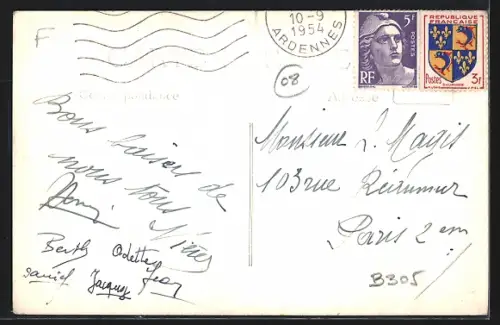 F
10-9
1954
ARDENNES
5F
POSTES
RF
REPUBLIQUE
FRANÇAISE
Postes
3F
08
Correspondance
Adresse
Bons baisers de
nous tous
Berth Odette
Daniel Jacques Jean
Monsieur L. Magis
103 rue Réaumur
Paris 2em
B305